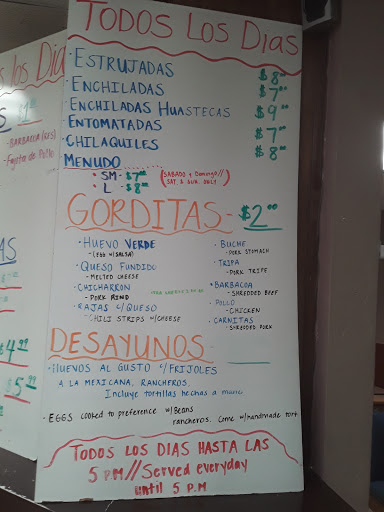 os Dia
$1
BARBACOA (RES)
Fajita de Pollo
AS
$4.99
$5
TODOS LOS DIAS
·ESTRUJADAS $8.00
·ENCHILADAS $7.00
·ENCHILADAS HUASTECAS $9.00
·ENTOMATADAS $7.00
·CHILAQUILES $8.00
MENUDO
• SM - $7.00
• L - $8.00
(SABADO y Domingo//
SAT & SUN. ONLY)
GORDITAS - $2.00
·HUEVO VERDE
-(EGG w/SALSA)
·QUESO FUNDIDO
-MELTED CHEESE
·CHICHARRON
-PORK RIND
·RAJAS C/QUESO
-CHILI STRIPS w/CHEESE
·BUCHE
-PORK STOMACH
·TRIPA
-PORK TRIPE
•BARBACOA
-SHREDDED BEEF
·POLLO
-CHICKEN
·CARNITAS
-SHREDDED PORK
DESAYUNOS
·HUEVOS AL GUSTO C/FRIJOLES
A LA MEXICANA, RANCHEROS.
Incluye tortillas hechas a mano
·EGGS cooked to preference w/Beans
rancheros. Come w/handmade tort
TODOS LOS DIAS HASTA LAS
5 P.M // Served everyday
until 5 P.M